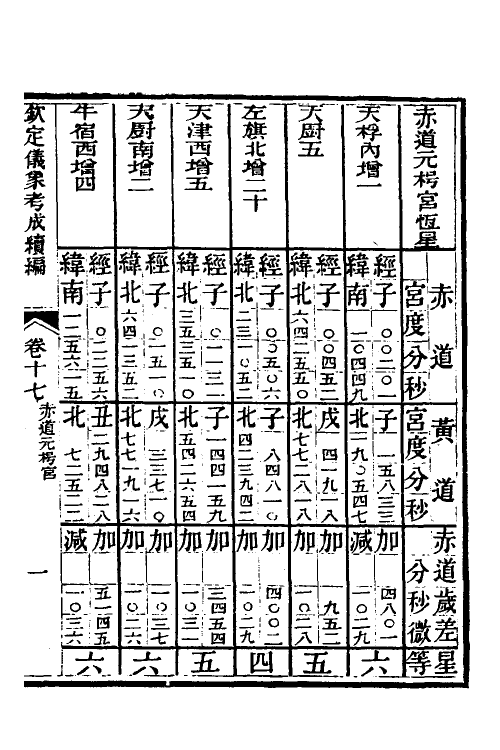 赤道元枵宮恆星
赤道 宮度分秒
黃道 宮度分秒
赤道歲差 分秒微
星等
天桴內增一
經子 ○○二○一 子 一五八三三 加 四八○一
緯南 一○四四九 北 一九○五四七 減 一○二九
六
天廚五
經子 ○○四五二 戌 四一九一八 加 一九五二
緯北 六四二五五 北 七七二八一八 加 一○二八
五
左旗北增二十
經子 ○○五○六 子 八四八一○ 加 四○○二
緯北 二三一○五二 北 四二三九四二 加 一○二九
四
天津西增五
經子 ○一一三一 子 一四四一五九 加 三四五四
緯北 三五三五一○ 北 五四二六五四 加 一○三一
五
天廚南增二
經子 ○一五一○ 戌 三三七一○ 加 一○三七
緯北 六四一三五二 北 七七一九一六 加 一○二六
六
牛宿西增四
經子 ○二二五六 丑 二九四八二八 加 五一四五
緯南 一二五六二五 北 七二五二二 減 一○三六
六
欽定儀象考成續編
卷十七 赤道元枵宮
一